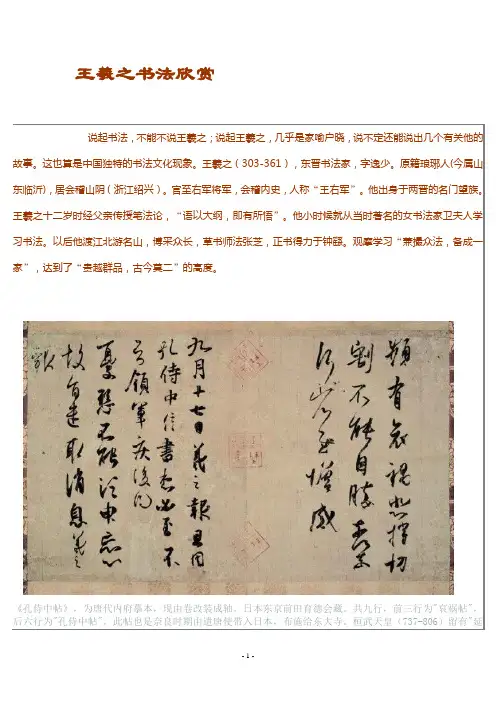 王羲之书法欣赏
说起书法，不能不说王羲之；说起王羲之，几乎是家喻户晓，说不定还能说出几个有关他的
故事。这也算是中国独特的书法文化现象。王羲之（303-361），东晋书法家，字逸少。原籍琅琊人(今属山
东临沂)，居会稽山阴（浙江绍兴）。官至右军将军，会稽内史，人称“王右军”。他出身于两晋的名门望族。
王羲之十二岁时经父亲传授笔法论，“语以大纲，即有所悟”。他小时候就从当时著名的女书法家卫夫人学
习书法。以后他渡江北游名山，博采众长，草书师法张芝，正书得力于钟繇。观摩学习“兼撮众法，备成一
家”，达到了“贵越群品，古今莫二”的高度。
頻有哀禍悲摧切
割不能自勝奈何
奈何省慰增感
九月十七日羲之報且因
孔侍中信書想必至不
知領軍疾後問
憂懸不能須臾忘心
故旨遣取消息羲之
報
《孔侍中帖》，为唐代内府摹本，现由卷改装成轴，日本东京前田育德会藏。共九行，前三行为"哀祸帖"，
后六行为"孔侍中帖"，此帖也是奈良时期由遣唐使带入日本，布施给东大寺，桓武天皇（737-806）留有"延
- 1 -